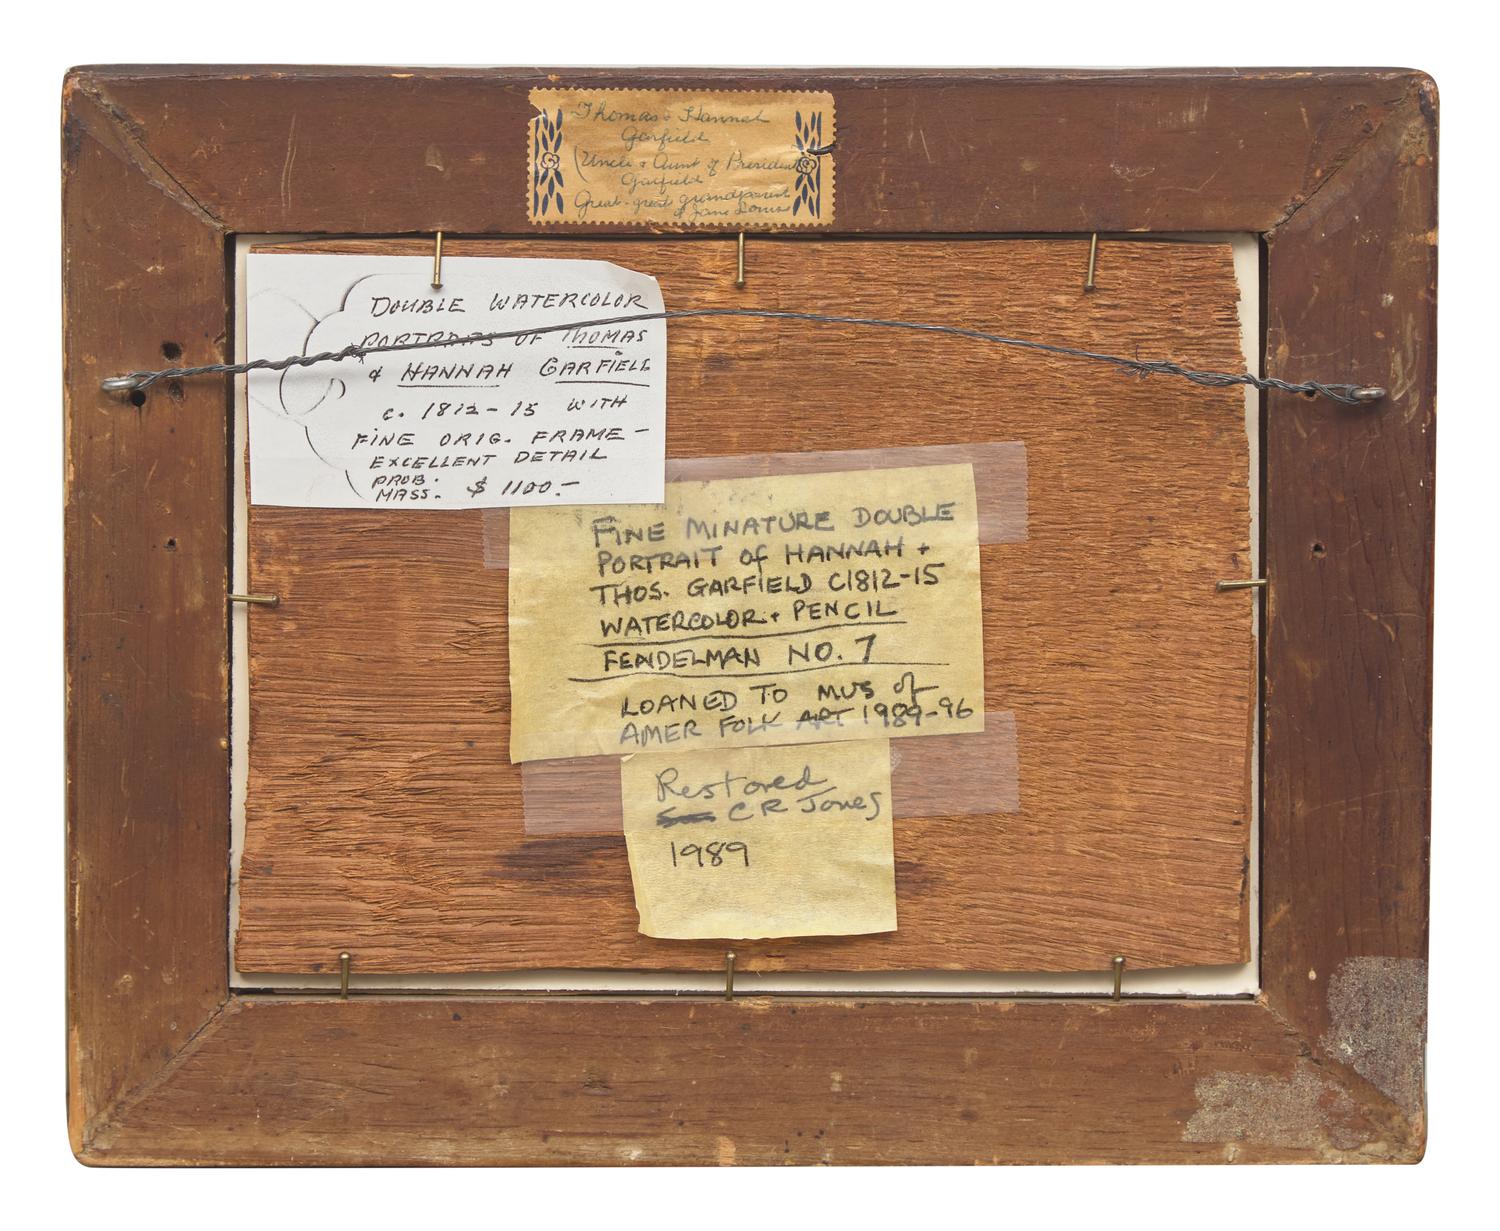 Thomas & Hannah
Garfield
(Uncle & Aunt of President
Garfield
Great-great grandparents
of Jane
DOUBLE WATERCOLOR
PORTRAITS OF THOMAS
& HANNAH GARFIELD
c. 1812-15 WITH
FINE ORIG. FRAME-
EXCELLENT DETAIL
PROB.
MASS. $ 1100.-
FINE MINATURE DOUBLE
PORTRAIT of HANNAH +
THOS. GARFIELD C1812-15
WATERCOLOR + PENCIL
FENDELMAN NO. 7
LOANED TO MUS of
AMER FOLK ART 1989-96
Restored
C R Jones
1989